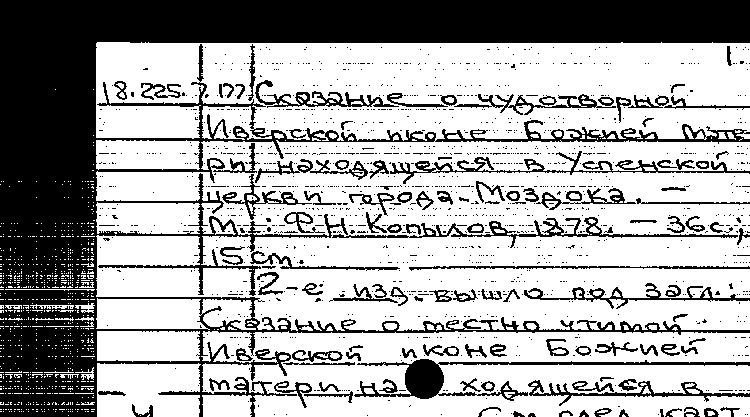 1.
18.225.7.177. Сказание о чудотворной
Иверской иконе Божией мате
ри, находящейся в Успенской
церкви города Моздока. —
М.: Ф.Н. Копылов, 1878. — 36 с.;
15 см.
2-е изд. вышло под загл.:
Сказание о местно чтимой
Иверской иконе Божией
матери, на ходящейся в
См. след. карт